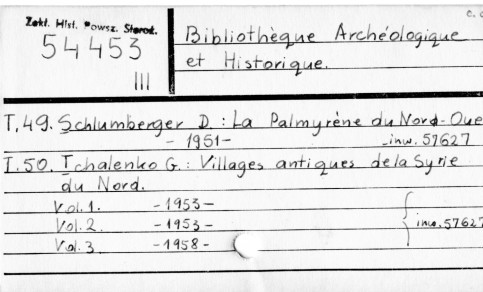 c. d
Zakł. Hist. Powsz. Staroż.
54453
III
Bibliothèque Archéologique
et Historique.
T.49. Schlumberger D. : La Palmyrène du Nord-Oue
- 1951 - inw. 57627
T.50. Tchalenko G. : Villages antiques de la Syrie
du Nord.
Vol. 1. - 1953 -
Vol. 2. - 1953 - inw. 57627
Vol. 3 - 1958 -